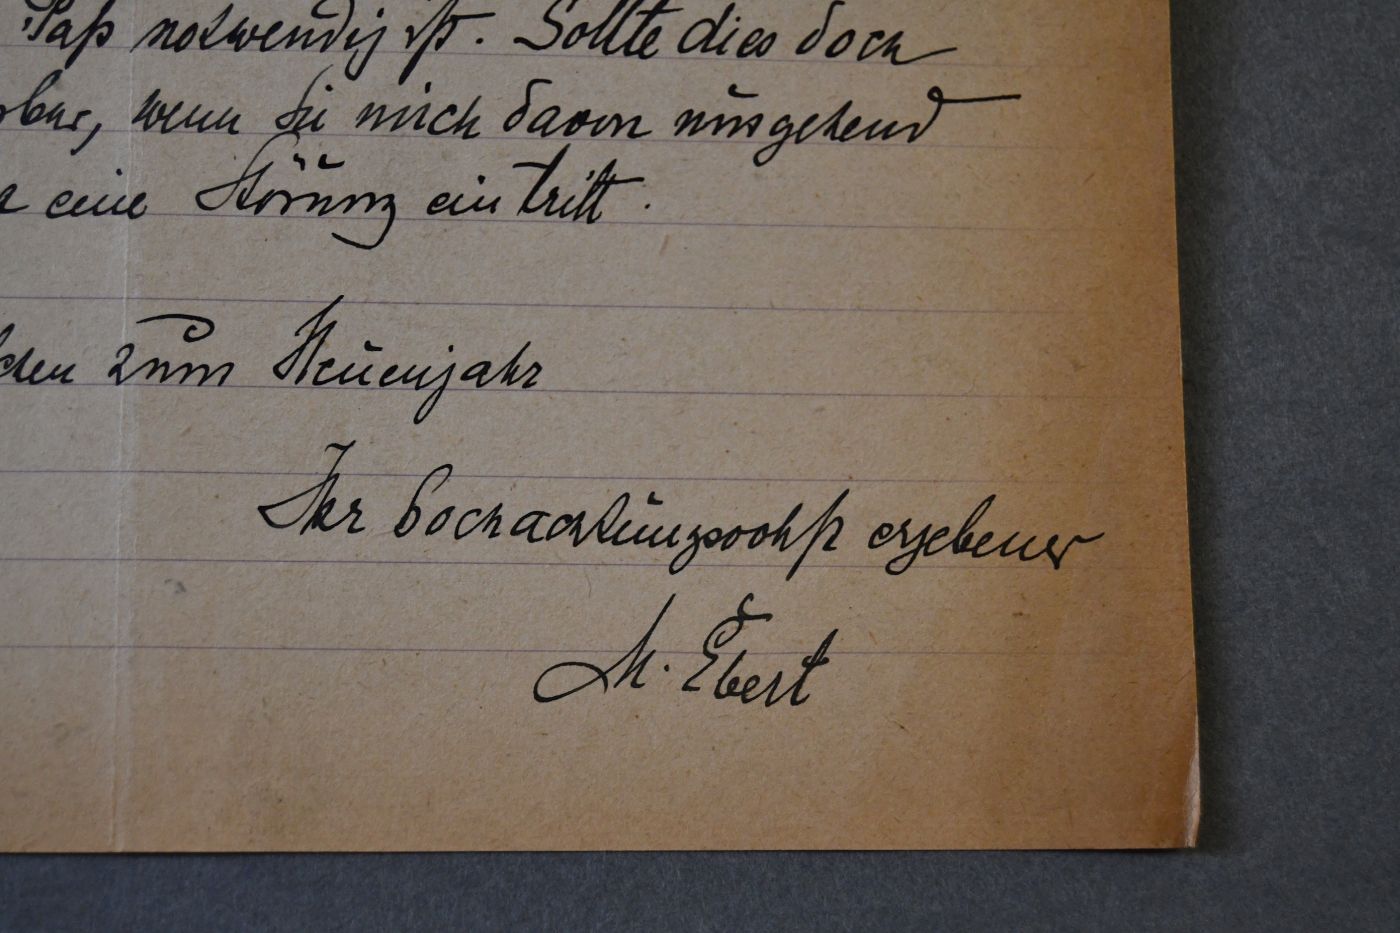 Paß notwendig ist. Sollte dies doch
wenn Sie mich davon umgehend
eine Störung eintritt.
zum Neuenjahr
Ihr hochachtungsvollst ergebener
M. Ebert